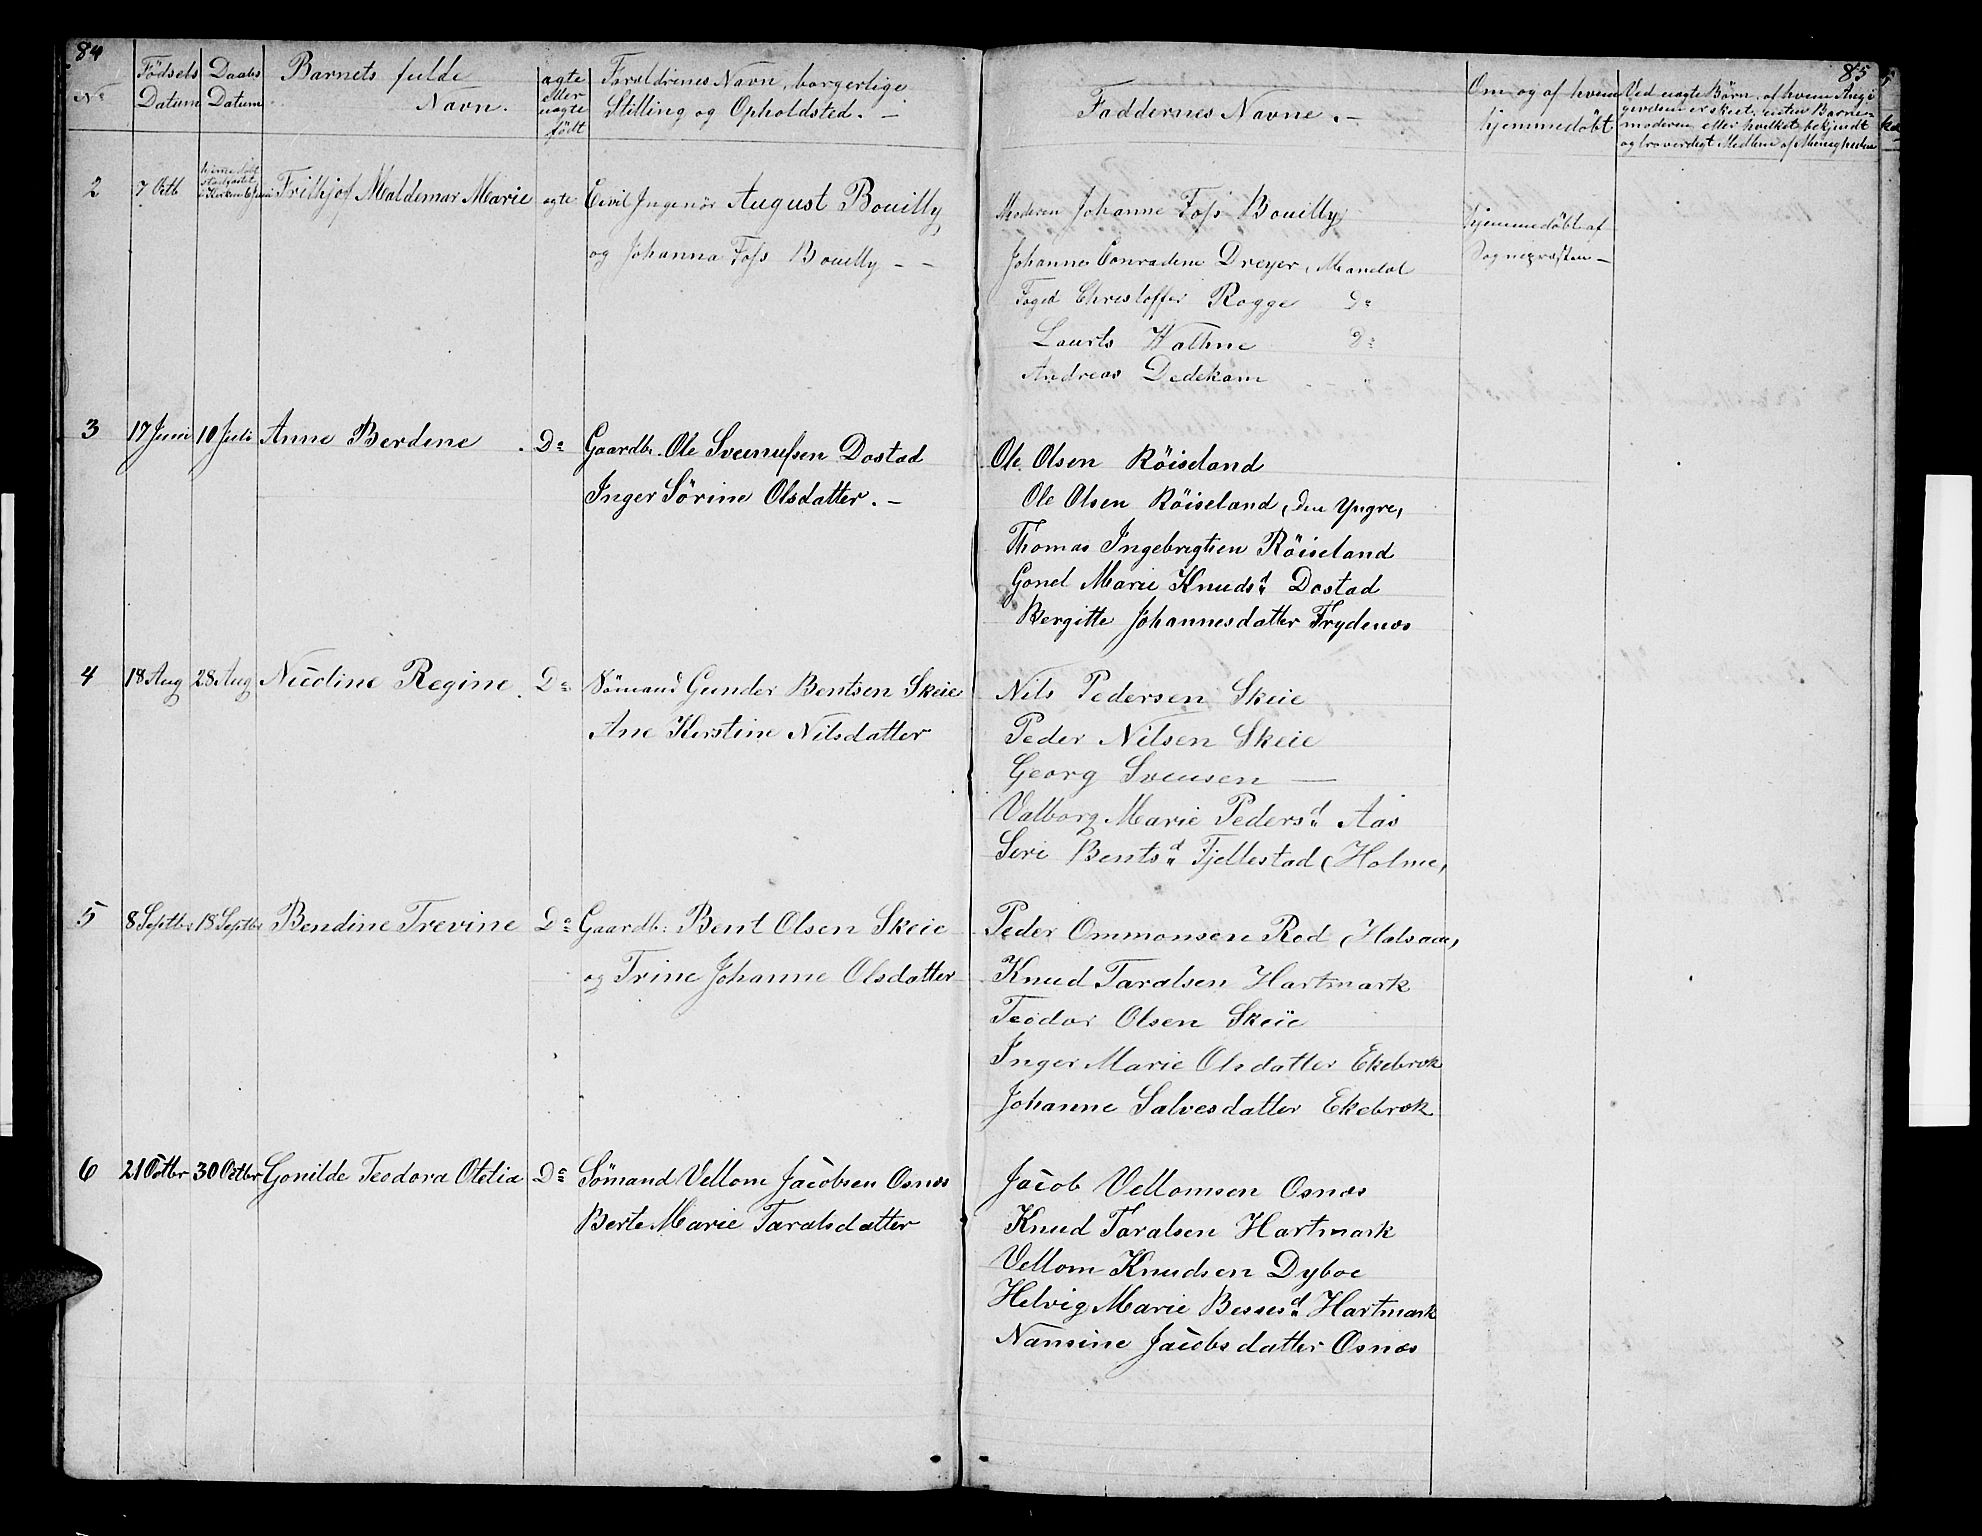 84
No
Födsels Datum
Daabs Datum
Barnets fulde Navn.
ægte eller uægte født
Forældrenes Navn, borgerlige
Stilling og Opholdsted. —
Faddernes Navne. —
85
Om og af hvem
hjemmedöbt
Ved uægte Børn, af hvem Angi-
givelsen er skeet, enten Barne-
moderen eller hvilket bekjendt
og troværdigt Medlem af Menigheden
2 7 Octb hjemedöbt stadfæstet i Kirken 6 Juni Frithjof Valdemar Marie ægte Civil Ingeniör August Bouilly
og Johanna Foss Bouilly — —
Moderen Johanne Foss Bouilly
Johanne Conradine Dreyer, Mandal
Foged Christoffer Rogge Do
Laurts Wathne Do
Andreas Dedekam "
hjemmedöbt af
Sognepræsten —
3 17 Juni 10 Juli Anne Berdine Do Gaardb. Ole Sveinussen Dostad
Inger Sörine Olsdatter. —
Ole Olsen Röiseland
Ole Olsen Röiseland, den Yngre,
Thomas Ingebrigtsen Röiseland
Gonel Marie Knudsd Dostad
Bergitte Johannesdatter Frydenæs
4 18 Aug 28 Aug Nicoline Regine Do Sömand Gunder Bentsen Skeie
Ane Kerstine Nilsdatter
Nils Pedersen Skeie
Peder Nilsen Skeie
Georg Svensen —
Valborg Marie Pedersd Aas
Seri Bentsd Fjellestad (Holme,
5 8 Septbr 18 Septbr Bendine Trevine Do Gaardb: Bent Olsen Skeie
og Trine Johanne Olsdatter
Peder Ommonsen Rod (Halsaa,
Knud Taralsen Hartmark
Teodor Olsen Skeie
Inger Marie Olsdatter Ekebrok
Johanne Salvesdatter Ekebrok
6 21 Octbr 30 Octbr Gonilde Teodora Otelia Do Sömand Vellom Jacobsen Osnæs
Berte Marie Taralsdatter
Jacob Vellomsen Osnæs
Knud Taralsen Hartmark
Vellom Knudsen Dyboe
Helvig Marie Bessesd Hartmark
Nansine Jacobsdatter Osnæs